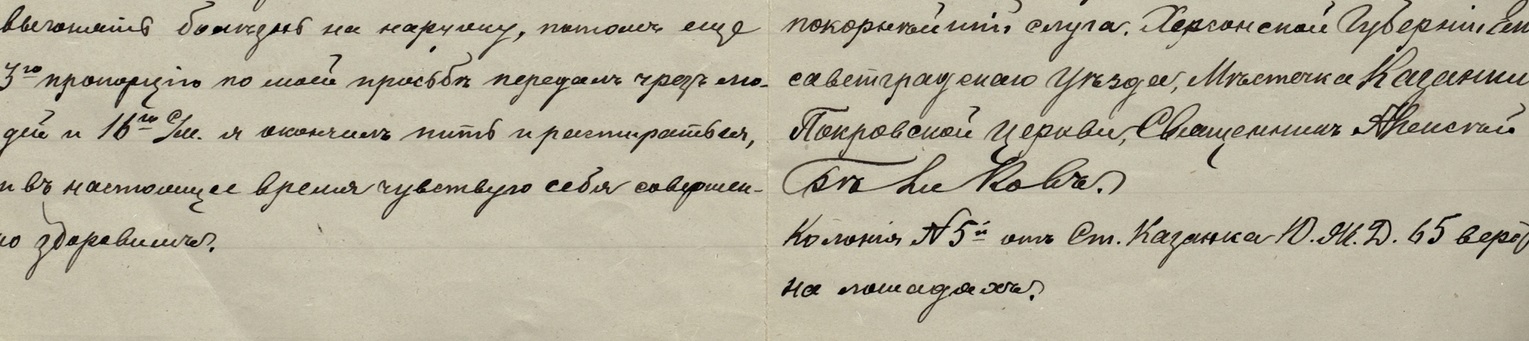 выгонять болѣзнь на наружу, потомъ еще
3го пропорцію по моей просьбѣ передалъ чрезъ лю-
дей и 16го с/м. я окончилъ пить и растираться,
и въ настоящее время чувствую себя совершен-
но здоровымъ.
покорнѣйшій слуга. Херсонской Губерніи, Ели
саветградскаго уѣзда, Мѣстечка Казанки
Покровской церкви, Священникъ Алексѣй
Колонія №5й отъ Ст. Казанка Ю. Ж. Д. 65 верс
на лошадяхъ.